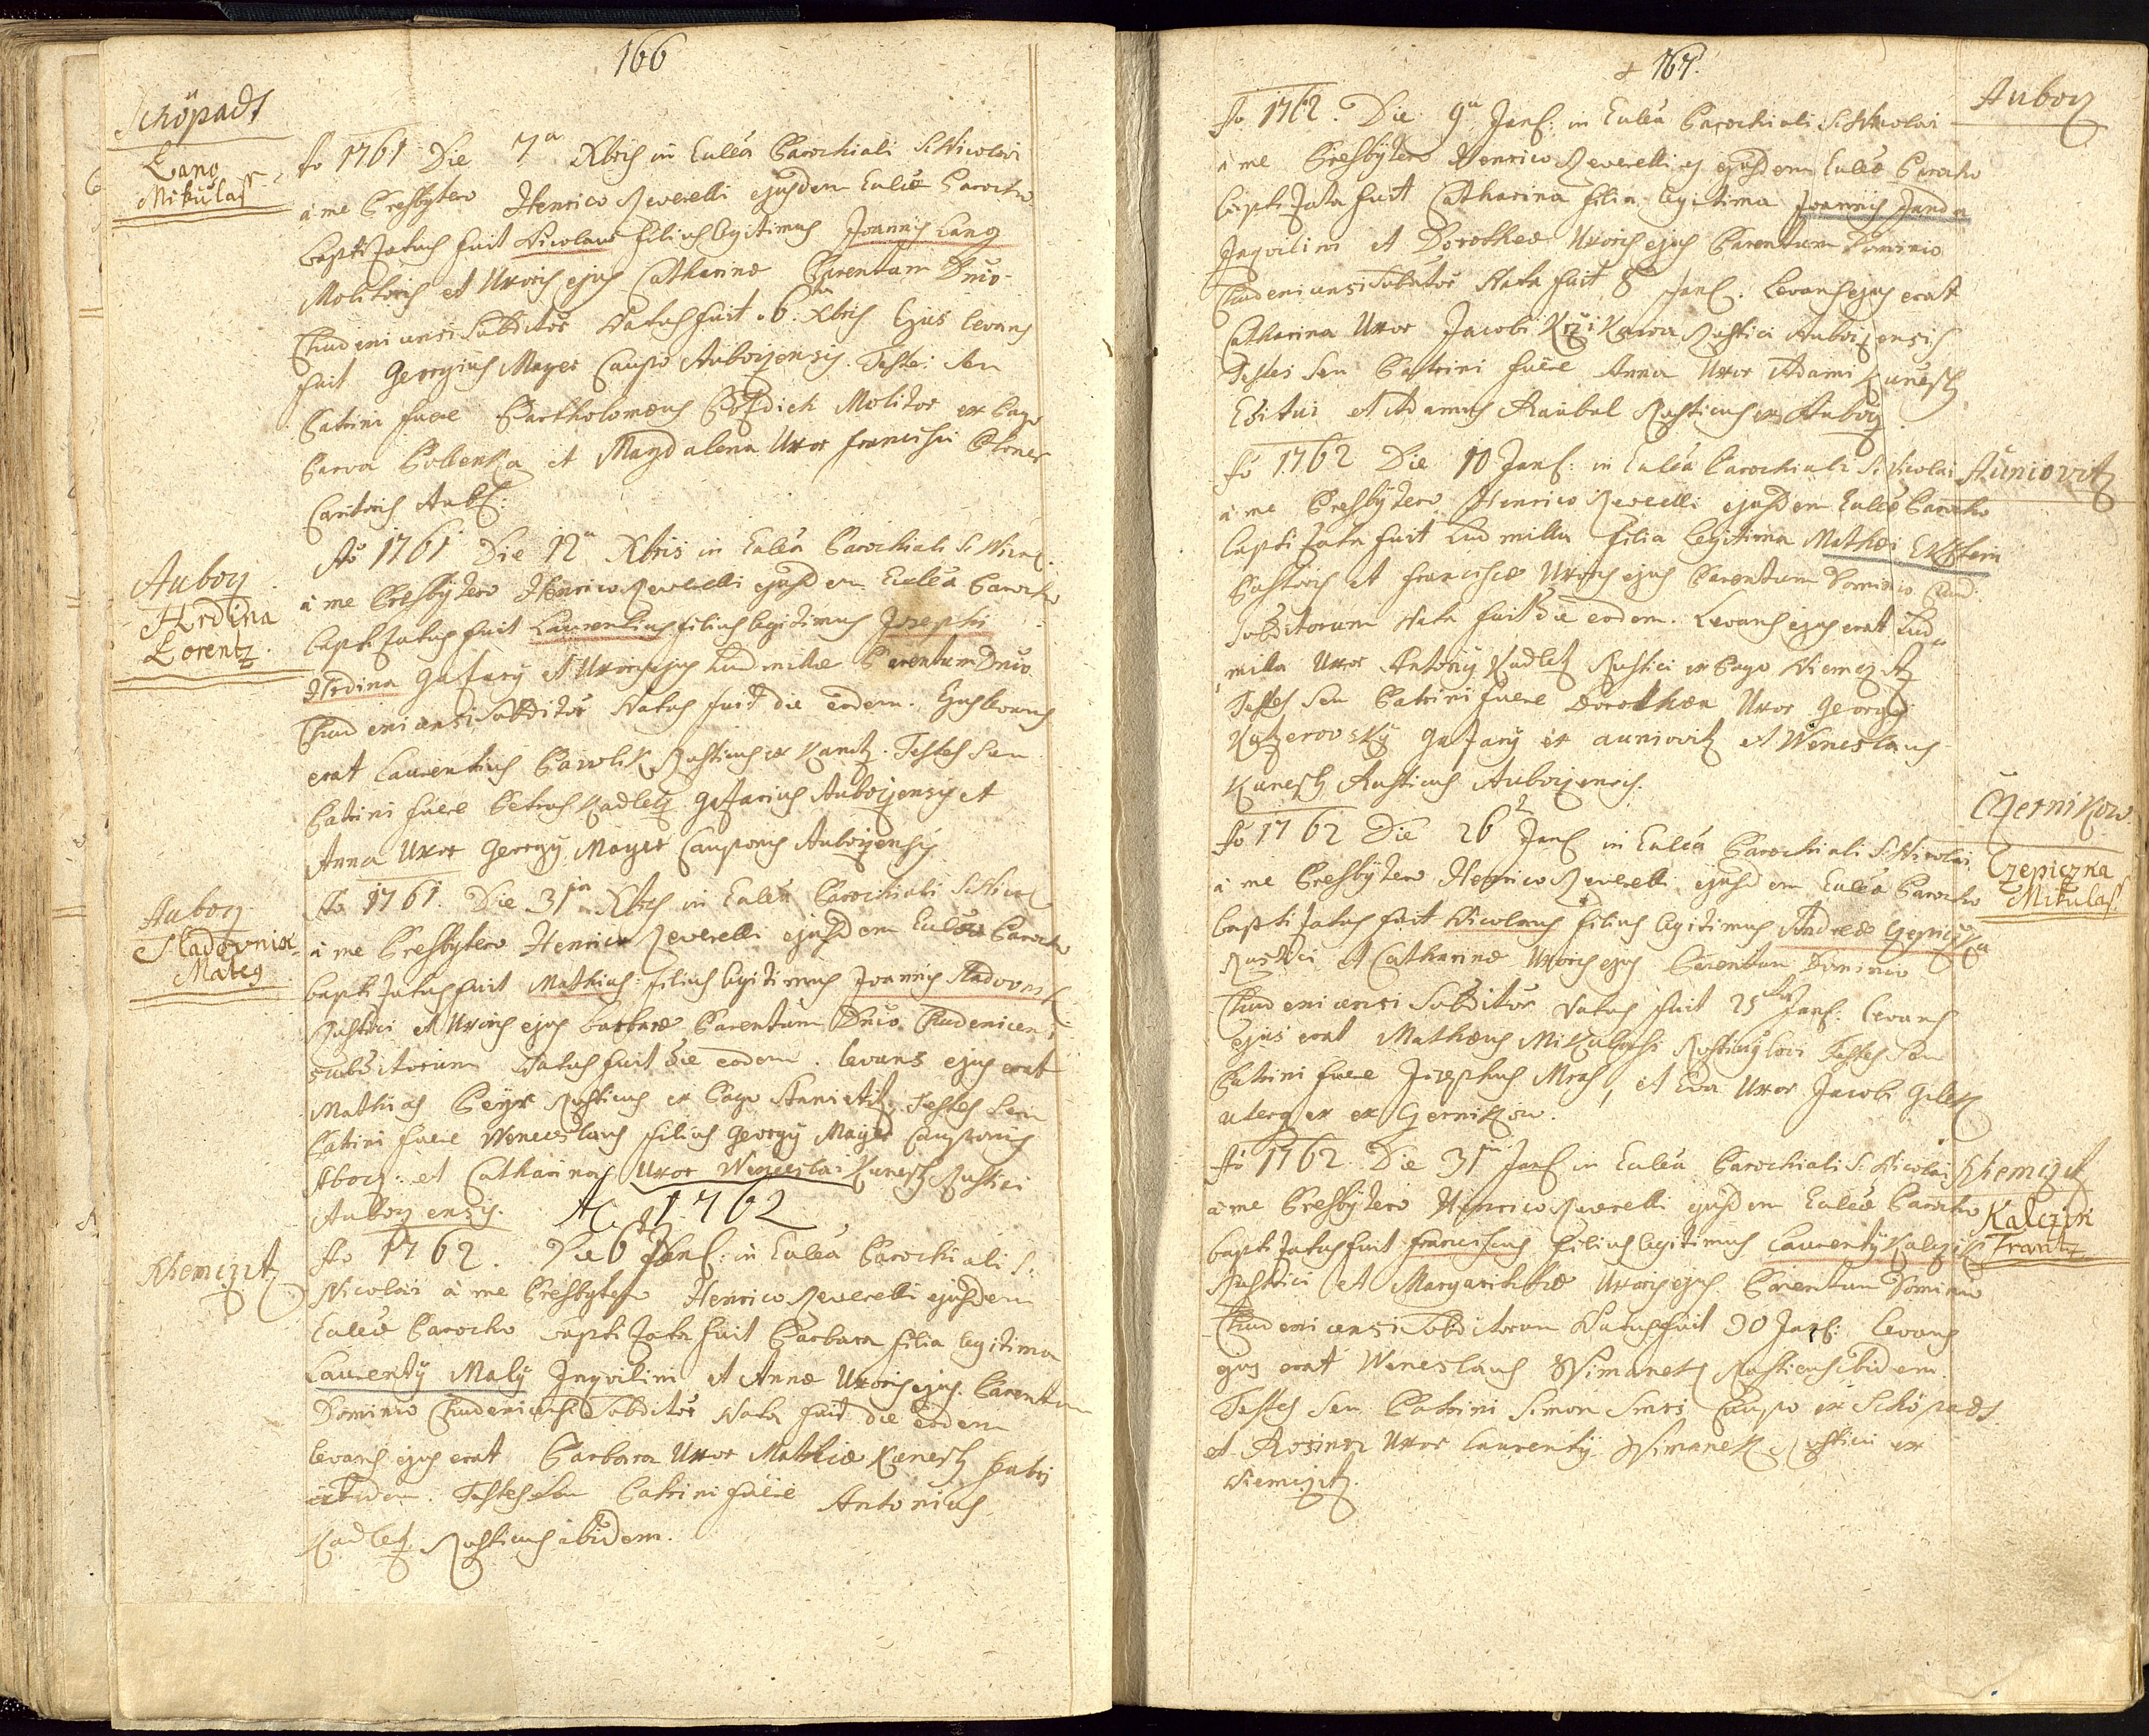 166
Schöpadt
Lang
Mikulaß
Ao 1761 Die 7a Xbris in Eccléa Parochiali S: Nicolai
à me Presbytero Henrico Reverelli ejusdem Eccliæ Parocho
baptizatus fuit Nicolaus filius legitimus Joannis Lang
Molitoris et Uxoris ejus Catharinæ Parentum Dnio
Chudenicensi Subditor Natus fuit 6ta Xbris Ejus levans
fuit Georgius Mayer Caupo Auborzensis. Testes seu
Patrini fuere Bartholomæus Molitor ex Pago
Parva et Magdalena Uxor Francisci
Aub:
Auborz
Hrdina
Lorentz.
Ao 1761 Die 12a Xbris in Eccléa Parochiali S: Nicol:
à me Presbytero Henrico Reverelli ejusdem Eccléa Parocho
baptizatus fuit Laurentius filius legitimus Josephi
Hrdina Gazary et Uxoris ejus Ludmillæ Parentum Dnio
Chudenicensi Subditor Natus fuit die eodem. Ejus levans
erat Laurentius Pawlik Rusticus ex Kanitz. Testes seu
Patrini fuere Petrus Kadletz Gazarius Auborzensis et
Anna Uxor Georgy Mayer Cauponis Auborzensis
Auborz
Sladovnik
Mateg
Ao 1761. Die 31ma Xbris in Eccléa Parochiali S: Nicol
à me Presbytero Henrico Reverelli ejusdem Eccléa Parocho
baptizatus fuit Mathias filius legitimus Joannis Sladovnik
Rustici et Uxoris ejus Barbaræ Parentum Dnio Chudenicensi
subditorum Natus fuit die eodem. levans ejus erat
Mathias Rusticus ex Pago Testes seu
Patrini fuere Wenceslaus filius Georgy Mayer Cauponis
Aborz: et Catharina Uxor Wenceslai Kunesch Rustici
Auborzensis. A: 1762
Niemczitz
Ao 1762. Die 6ta Janu: in Eccléa Parochiali S:
Nicolai à me Presbytero Henrico Reverelli ejusdem
Eccléæ Parocho baptizata fuit Barbara filia legitima
Laurenty Maly Inquilini et Annæ Uxoris ejus Parentum
Dominio Chudenicensi Subditor Nata fuit die eodem
levans ejus erat Barbara Uxor Mathiæ Kunesch Fabri
ibidem. Testes seu Patrini fuere Antonius
Kadletz Rusticus ibidem.
167.
Auborz
Ao 1762. Die 9a Janu: in Eccléa Parochiali S: Nicolai
à me Presbytero Henrico Reverelli ejusdem Eccléæ Parocho
baptizata fuit Catharina filia legitima Joannis Janda
Inquilini et Dorotheæ Uxoris ejus Parentum Dominio
Chudenicensi Subditor Nata fuit 8 Janu. Levans ejus erat
Catharina Uxor Jacobi Krzikawa Rustici Auborzensis
Testes seu Patrini fuere Anna Uxor Adami Kunesch
Æditui et Adamus Raubal Rusticus ex Auborz.
Auniovitz
Ao 1762 Die 10 Janu: in Eccléa Parochiali S: Nicolai
à me Presbytero Henrico Reverelli ejusdem Eccléæ Parocho
baptizata fuit Ludmilla filia legitima Mathæi Ekstein
Pastoris et Franciscæ Uxoris ejus Parentum Dominio Chud:
Subditorum Nata fuit die eodem. Levans ejus erat Lud
milla Uxor Antony Kadletz Rustici ex Pago Niemczitz
Testes seu Patrini fuere Dorothæa Uxor Georgy
Katzerovsky Gazary ex auniovitz et Wenceslaus
Kunesch Rusticus Auborzensis.
Czernikow
Czepiczka
Mikulaß
Ao 1762 Die 26 Janu in Eccléa Parochiali S: Nicolai
à me Presbytero Henrico Reverelli ejusdem Eccléa Parocho
baptizatus fuit Nicolaus filius legitimus Andreæ Czepiczka
Rustici et Catharinæ Uxoris ejus Parentum Dominio
Chudenicensi Subditor Natus fuit 25ta Janu: levans
ejus erat Mathæus Rusticus Testes seu
Patrini fuere Josephus Mras, et Eva Uxor Jacobi
uterque ex Czernikow.
Niemczitz
Kalczik
Frantz
Ao 1762 Die 31ma Janu in Eccléa Parochiali S: Nicolai
à me Presbytero Henrico Reverelli ejusdem Eccléæ Parocho
baptizatus fuit Franciscus filius legitimus Laurenty Kalczik
Rustici et Margarithæ Uxoris ejus Parentum Dominio
Chudenicensi Subditorum Natus fuit 30 Janu: levans
ejus erat Wenceslaus Rusticus ibidem.
Testes seu Patrini Simon Caupo ex Schöpadt
et Rosina Uxor Laurenty Rustici ex
Niemczitz.